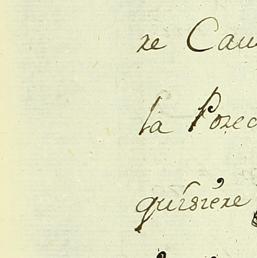 re Cau
la Porec
quisiere